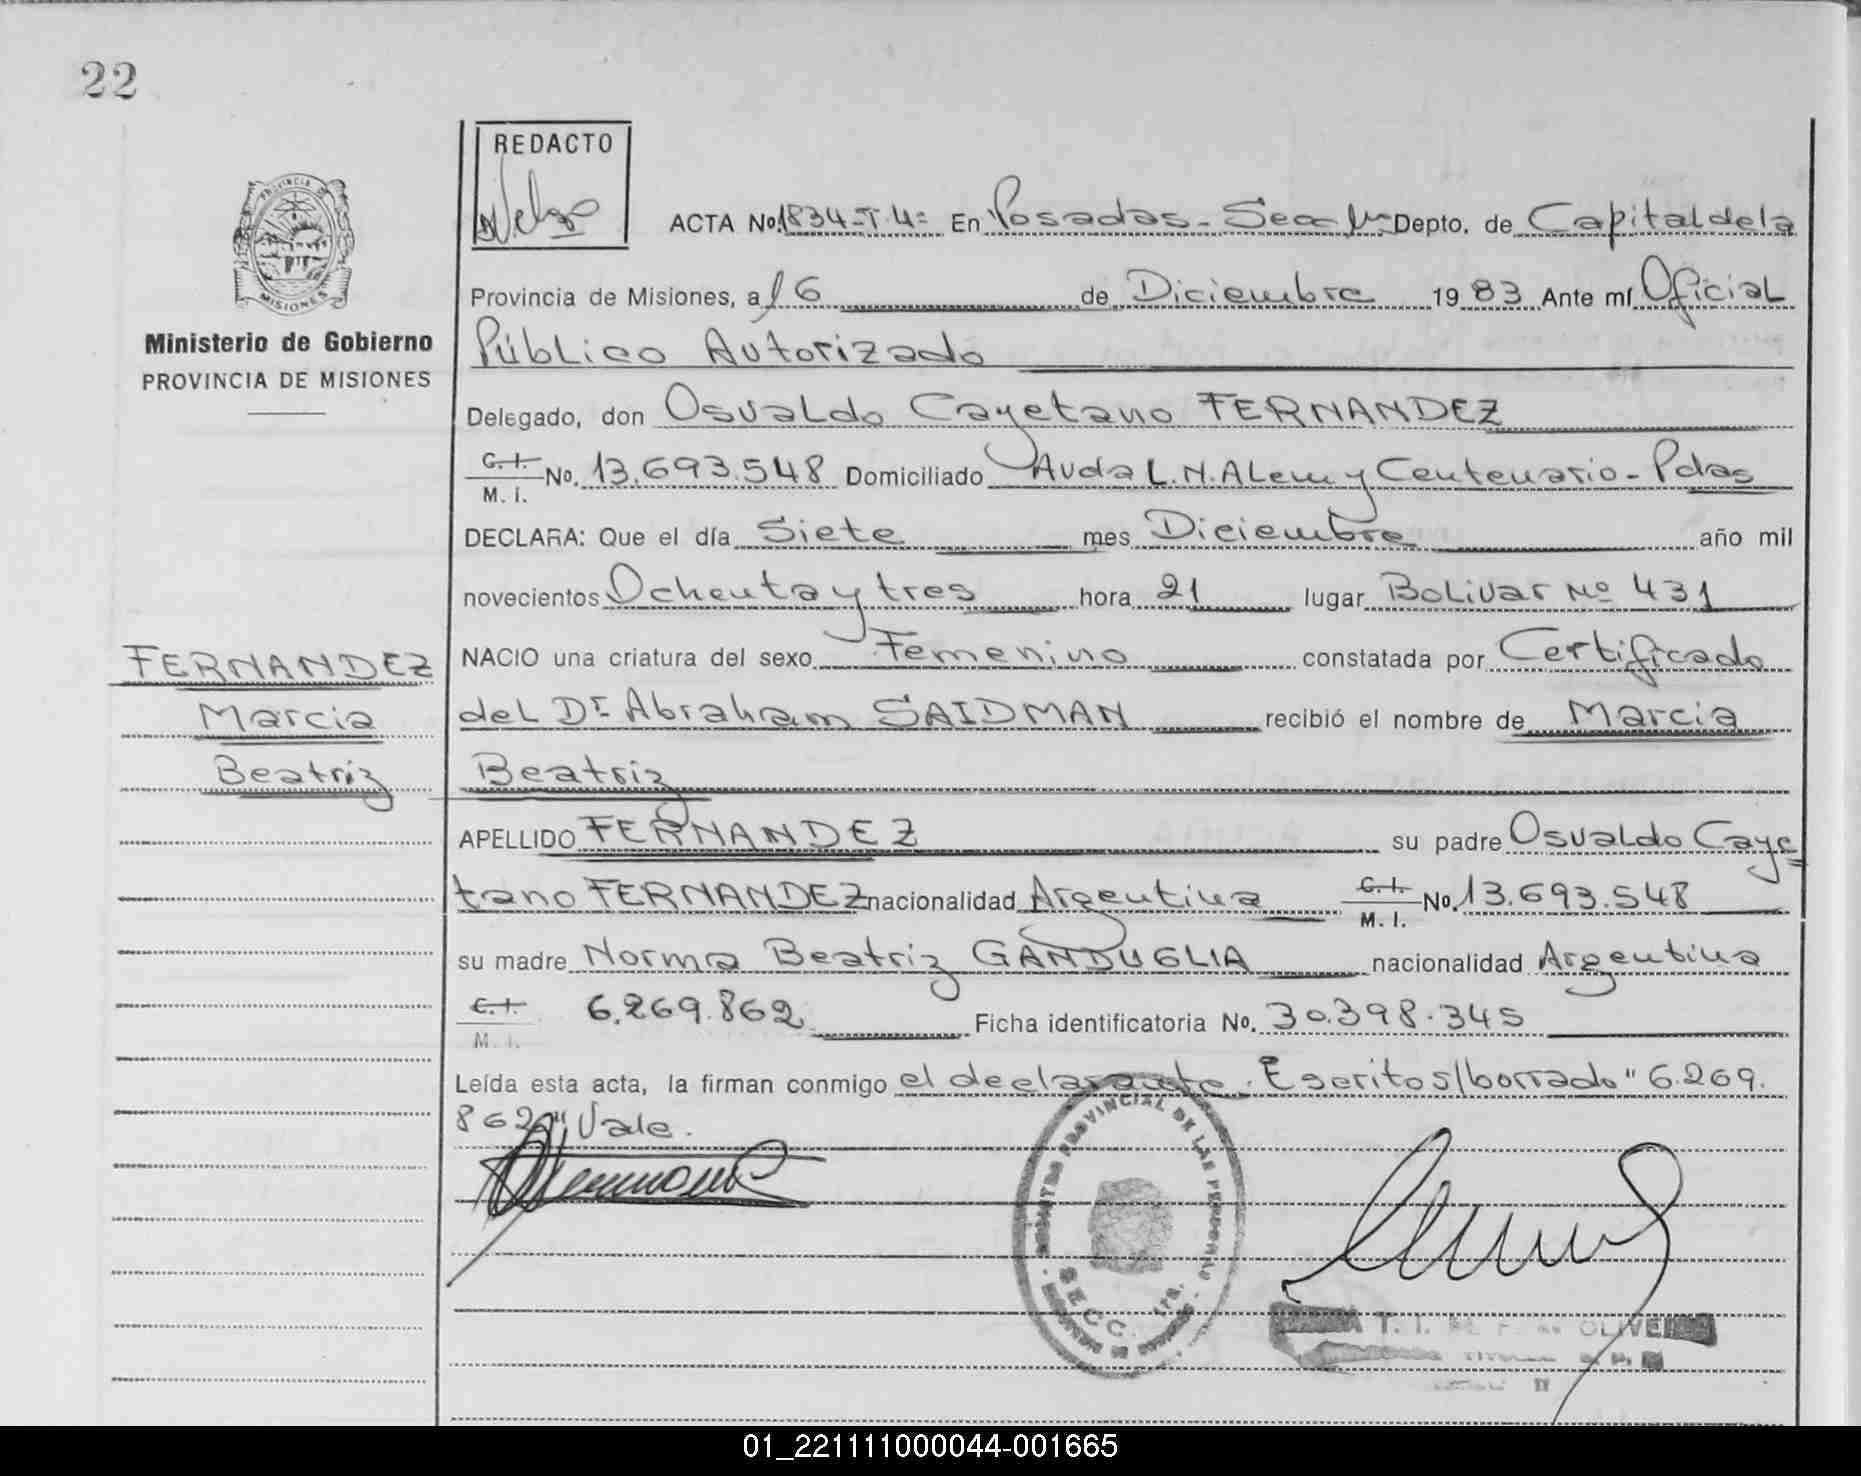 22
REDACTO
ACTA No. 1834-T.4º En Posadas - Secc 1ra Depto. de Capital de la
Provincia de Misiones, a 16 de Diciembre 1983 Ante mí Oficial
Público Autorizado
Delegado, don Osvaldo Cayetano FERNANDEZ
C.I. M.I. No. 13.693.548 Domiciliado Avda L.N. Alem y Centenario - Pdas
DECLARA: Que el día Siete mes Diciembre año mil
novecientos Ochenta y tres hora 21 lugar Bolivar Nº 431
NACIO una criatura del sexo Femenino constatada por Certificado
del Dr. Abraham SAIDMAN recibió el nombre de Marcia
Beatriz
APELLIDO FERNANDEZ su padre Osvaldo Caye=
tano FERNANDEZ nacionalidad Argentina C.I. M.I. No. 13.693.548
su madre Norma Beatriz GANDUGLIA nacionalidad Argentina
C.I. M.I. 6.269.862 Ficha identificatoria No. 30.398.345
Leída esta acta, la firman conmigo el declarante. Escrito s/borrado "6.269.
862" Vale.
Ministerio de Gobierno
PROVINCIA DE MISIONES
FERNANDEZ
Marcia
Beatriz
PROVINCIA DE
MISIONES
PROVINCIAL DE LAS PERSONAS
SECC. 1ra.
01_221111000044-001665